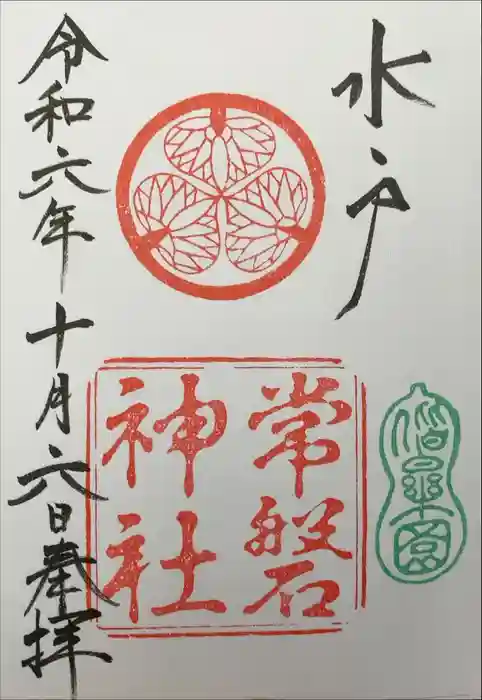 水戸
常磐
神社
偕楽園
令和六年十月六日奉拝